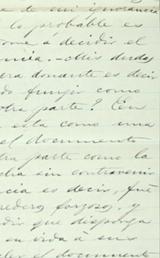 de mi ignorancia
lo probable es
tome á decidir el
ncia. Mis dudas
era donante es decir
do fungir como
otra parte? En
esta como una
el documento
tra parte como la
dia sin contraveni
cia es decir, fué
redero forzoso, y
dir que disponga
en vida a sus
el documento